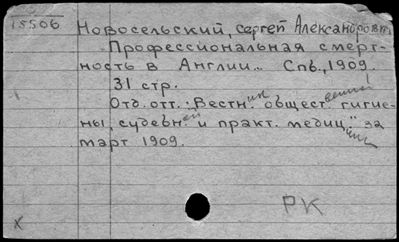 15506
Новосельский, Сергей Александрович
Профессиональная смерт-
ность в Англии... Спб., 1909.
31 стр.
Отд. отт.: "Вестник обществ енной гигие-
ны, судебн ой и практ. медиц ины" за
март 1909.
РК
X